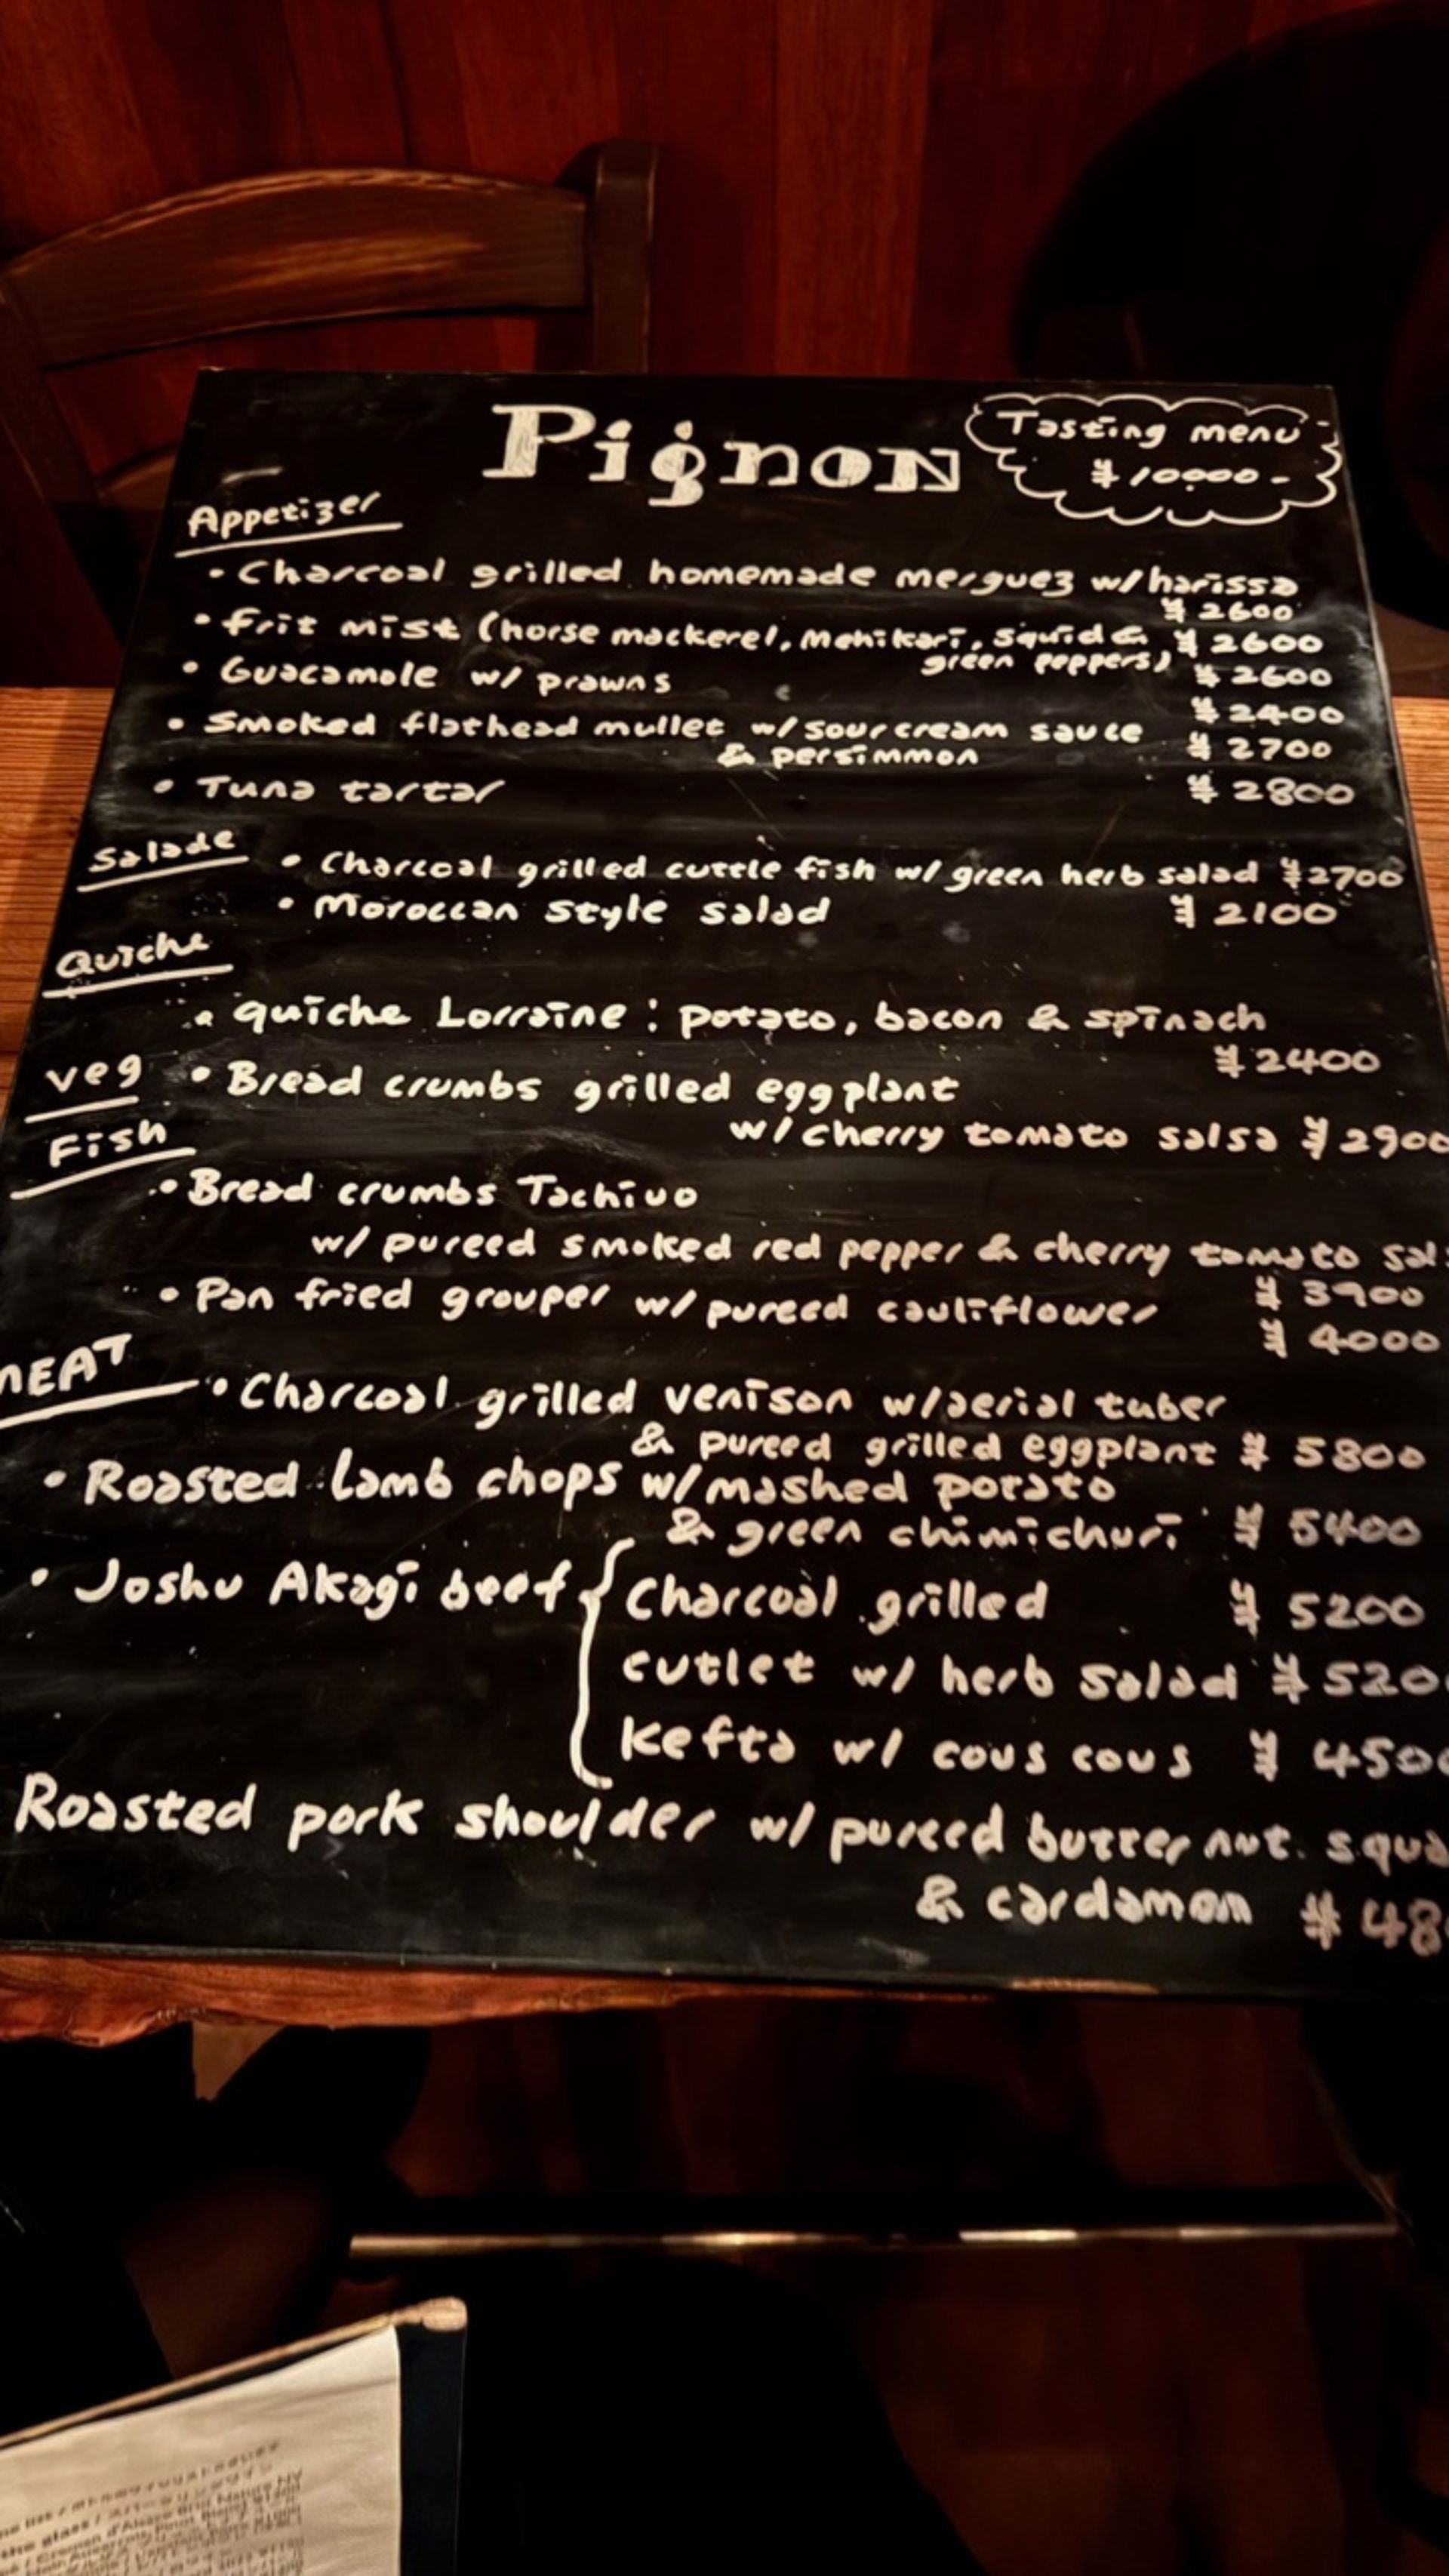 Pignon
Tasting menu
¥10000-
Appetizer
• Charcoal grilled homemade merguez w/harissa
¥2600
• Frit mist (horse mackerel, Mehikari, squid &
green peppers) ¥2600
• Guacamole w/ prawns ¥2600
¥2400
• Smoked flathead mullet w/ sour cream sauce
& persimmon ¥2700
• Tuna tartar ¥2800
Salade
• Charcoal grilled cuttle fish w/ green herb salad ¥2700
• Moroccan style salad ¥2100
Quiche
• quiche Lorraine: potato, bacon & spinach
¥2400
veg • Bread crumbs grilled eggplant
w/ cherry tomato salsa ¥2900
Fish
• Bread crumbs Tachiuo
w/ pureed smoked red pepper & cherry tomato sal
¥3900
• Pan fried grouper w/ pureed cauliflower
¥4000
MEAT
• Charcoal grilled venison w/aerial tuber
& pureed grilled eggplant ¥5800
• Roasted lamb chops w/mashed potato
& green chimichuri ¥5400
• Joshu Akagi beef { Charcoal grilled ¥5200
cutlet w/ herb salad ¥520
Kefta w/ cous cous ¥4500
Roasted pork shoulder w/ pureed butternut squa
& cardamon ¥48